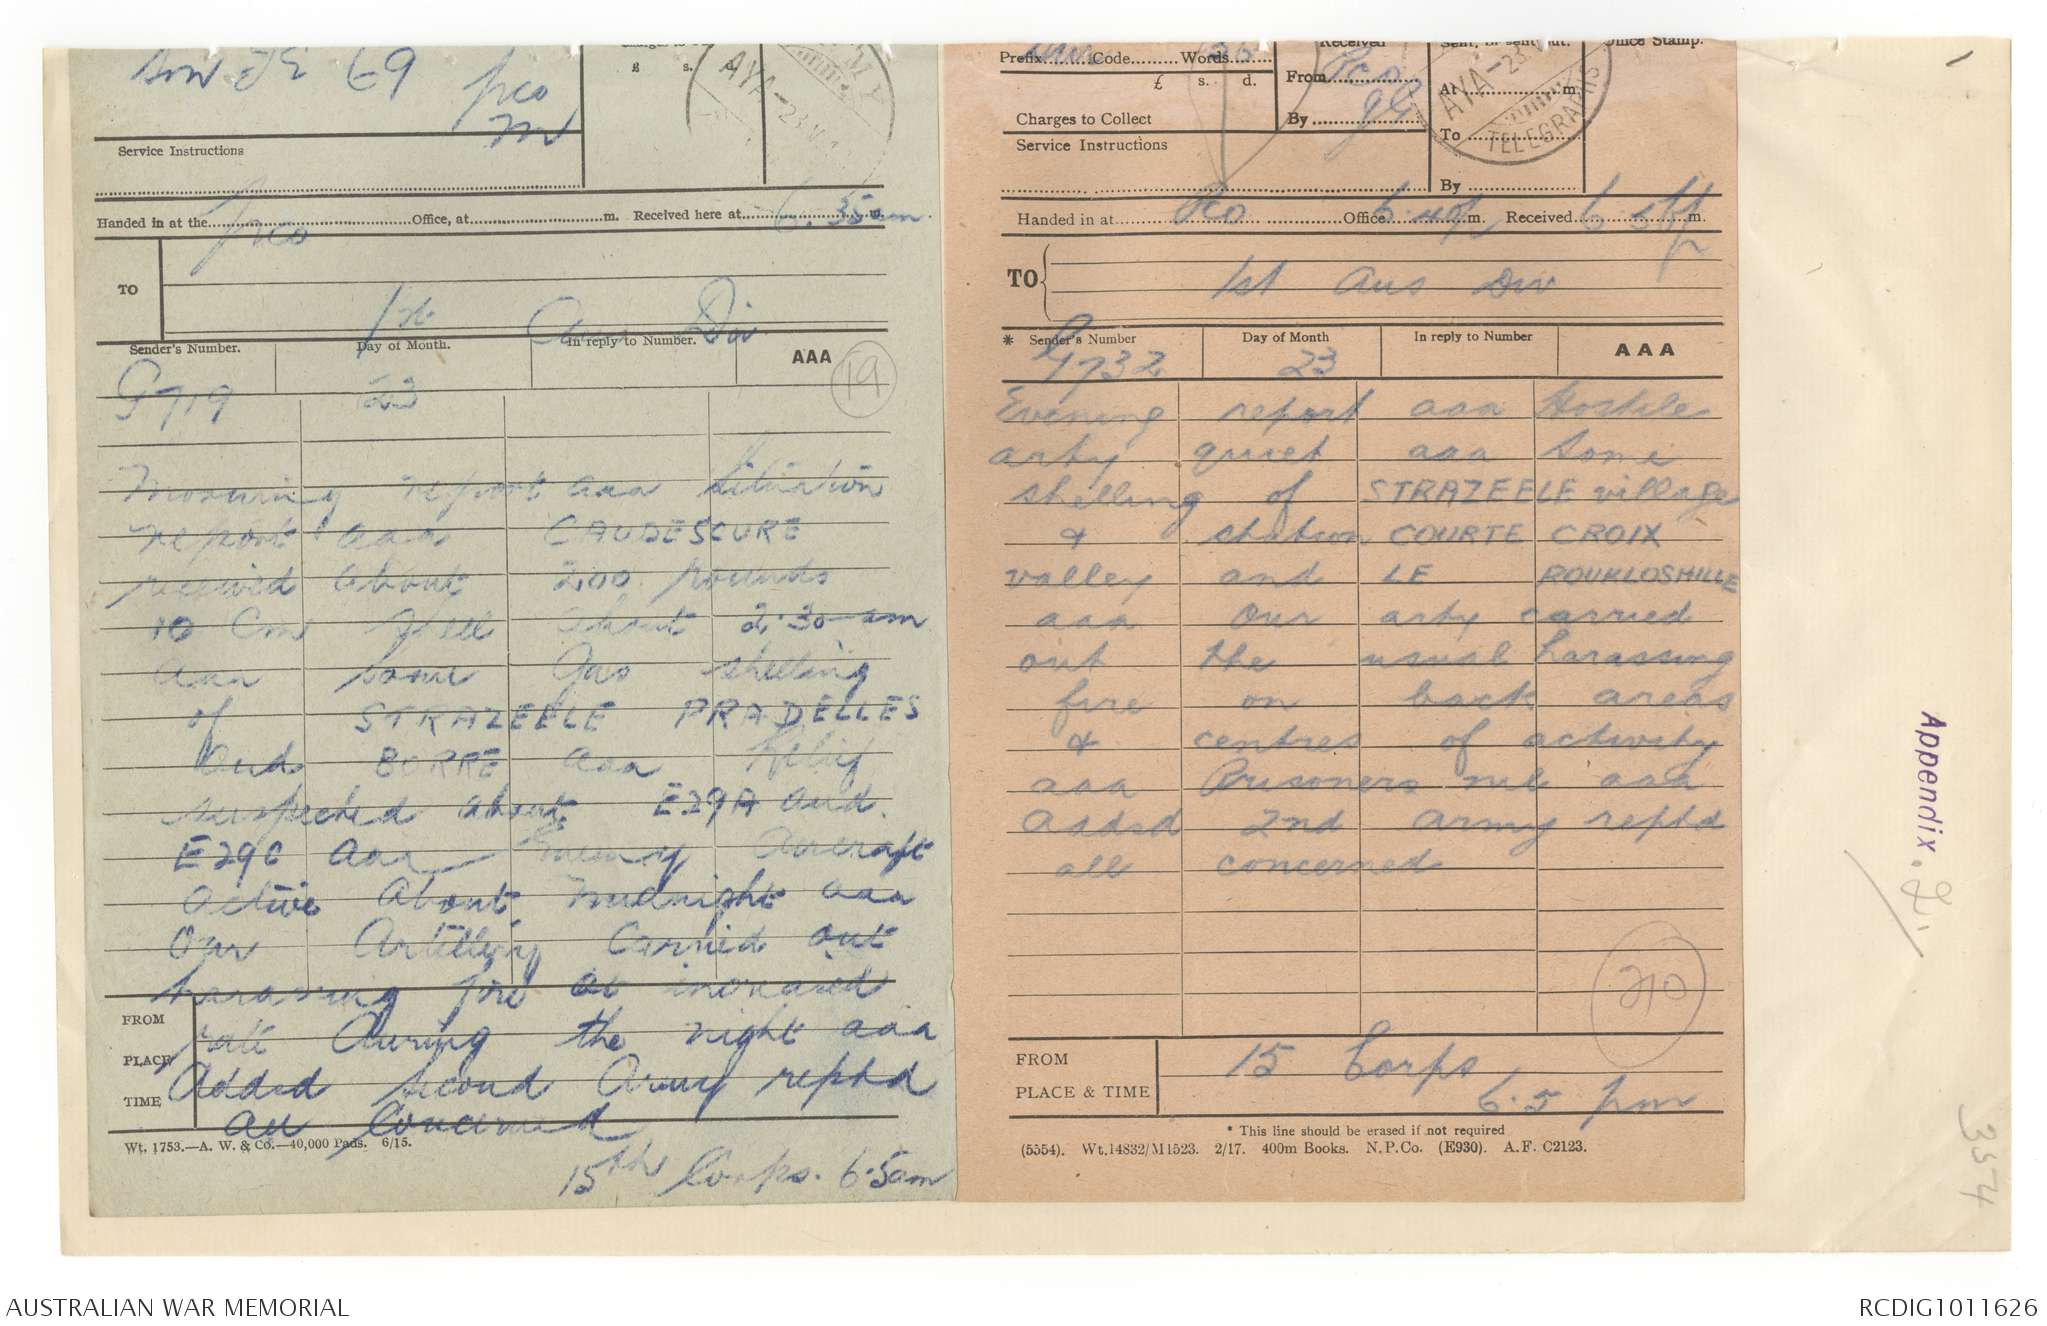 69 pco
Service Instructions
£ s. d.
AYA-23.V
Handed in at the pco Office, at m. Received here at 6.35am
TO
1st Aus Div
Sender's Number. Day of Month. In reply to Number. AAA
G719 23
19
Morning report aaa Situation
report aaa CAUDESCURE
received about 200 rounds
10 Cm fell about 2.30 am
aaa some Gas shelling
of STRAZEELE PRADELLES
and BORRE aaa Relief
suspected about E29A and
E29C aaa Enemy Aircraft
active About midnight aaa
Our Artillery Carried out
harassing fire at increased
rate during the night aaa
Added second Army reptd
all Concerned
FROM
PLACE
TIME
Wt. 1753.—A. W. & Co.—40,000 Pads. 6/15.
15th Corps. 6.5am
Prefix Code Words
Received
Sent, or sent out.
Office Stamp.
£ s. d.
From Pco
At m.
Charges to Collect
By
To
Service Instructions
By
AYA-23
TELEGRAPHS
Handed in at Pco Office 6.40p m. Received 6.51p m.
TO 1st Aus Div
* Sender's Number Day of Month In reply to Number AAA
G732 23
Evening report aaa Hostile
arty quiet aaa Some
shelling of STRAZEELE village
& station COURTE CROIX
valley and LE ROUKLOSHILLE
aaa Our arty carried
out the usual harassing
fire on back areas
& centres of activity
aaa Prisoners nil aaa
Added 2nd Army reptd
all concerned
210
FROM 15 Corps
PLACE & TIME 6.5 pm
* This line should be erased if not required
(5554). Wt.14832/M1523. 2/17. 400m Books. N.P.Co. (E930). A.F. C2123.
Appendix.
3574
AUSTRALIAN WAR MEMORIAL
RCDIG1011626